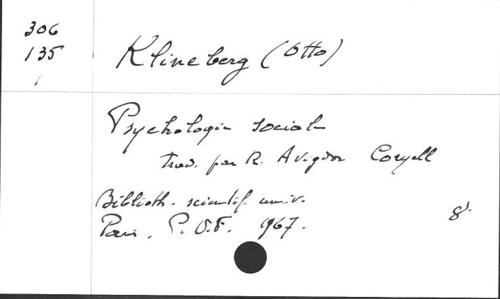 306
135
1
Klineberg (Otto)
Psychologie sociale
trad. par R. Avigdor Coryell
Biblioth. scientif. univ.
Paris. P.U.F. 1967.
8°.